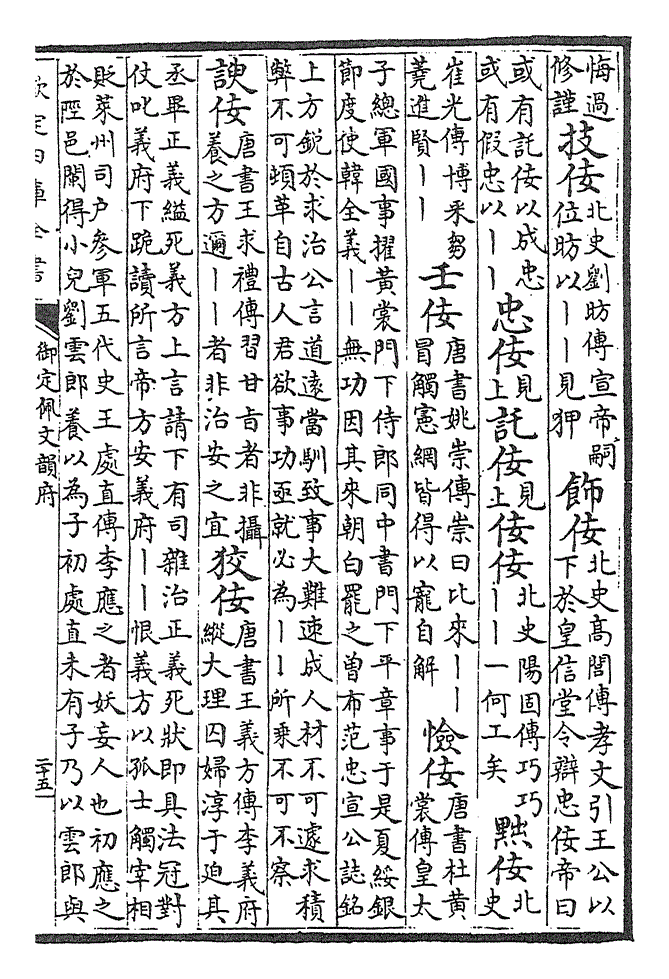 悔過修謹技佞北史劉昉傳宣帝嗣位昉以丨丨見狎飾佞北史高閭傳孝文引王公以下於皇信堂令辯忠佞帝曰
或有託佞以成忠或有假忠以丨丨忠佞見上託佞見上佞佞北史陽固傳巧巧丨丨一何工矣黜佞北史
崔光傳博采芻蕘進賢丨丨壬佞唐書姚崇傳崇曰比來丨丨冒觸憲網皆得以寵自解憸佞唐書杜黄裳傳皇太
子總軍國事擢黄裳門下侍郎同中書門下平章事于是夏綏銀節度使韓全義丨丨無功因其來朝白罷之曾布范忠宣公誌銘
上方鋭於求治公言道遠當馴致事大難速成人材不可遽求積弊不可頓革自古人君欲事功亟就必為丨丨所乘不可不察
諛佞唐書王求禮傳習甘旨者非攝養之方邇丨丨者非治安之宜狡佞唐書王義方傳李義府縱大理囚婦淳于迫其
丞畢正義縊死義方上言請下有司雜治正義死狀即具法冠對仗叱義府下跪讀所言帝方安義府丨丨恨義方以孤士觸宰相
貶萊州司户參軍五代史王處直傳李應之者妖妄人也初應之於陘邑闌得小兒劉雲郎養以為子初處直未有子乃以雲郎與
欽定四庫全書
御定佩文韻府
二十五